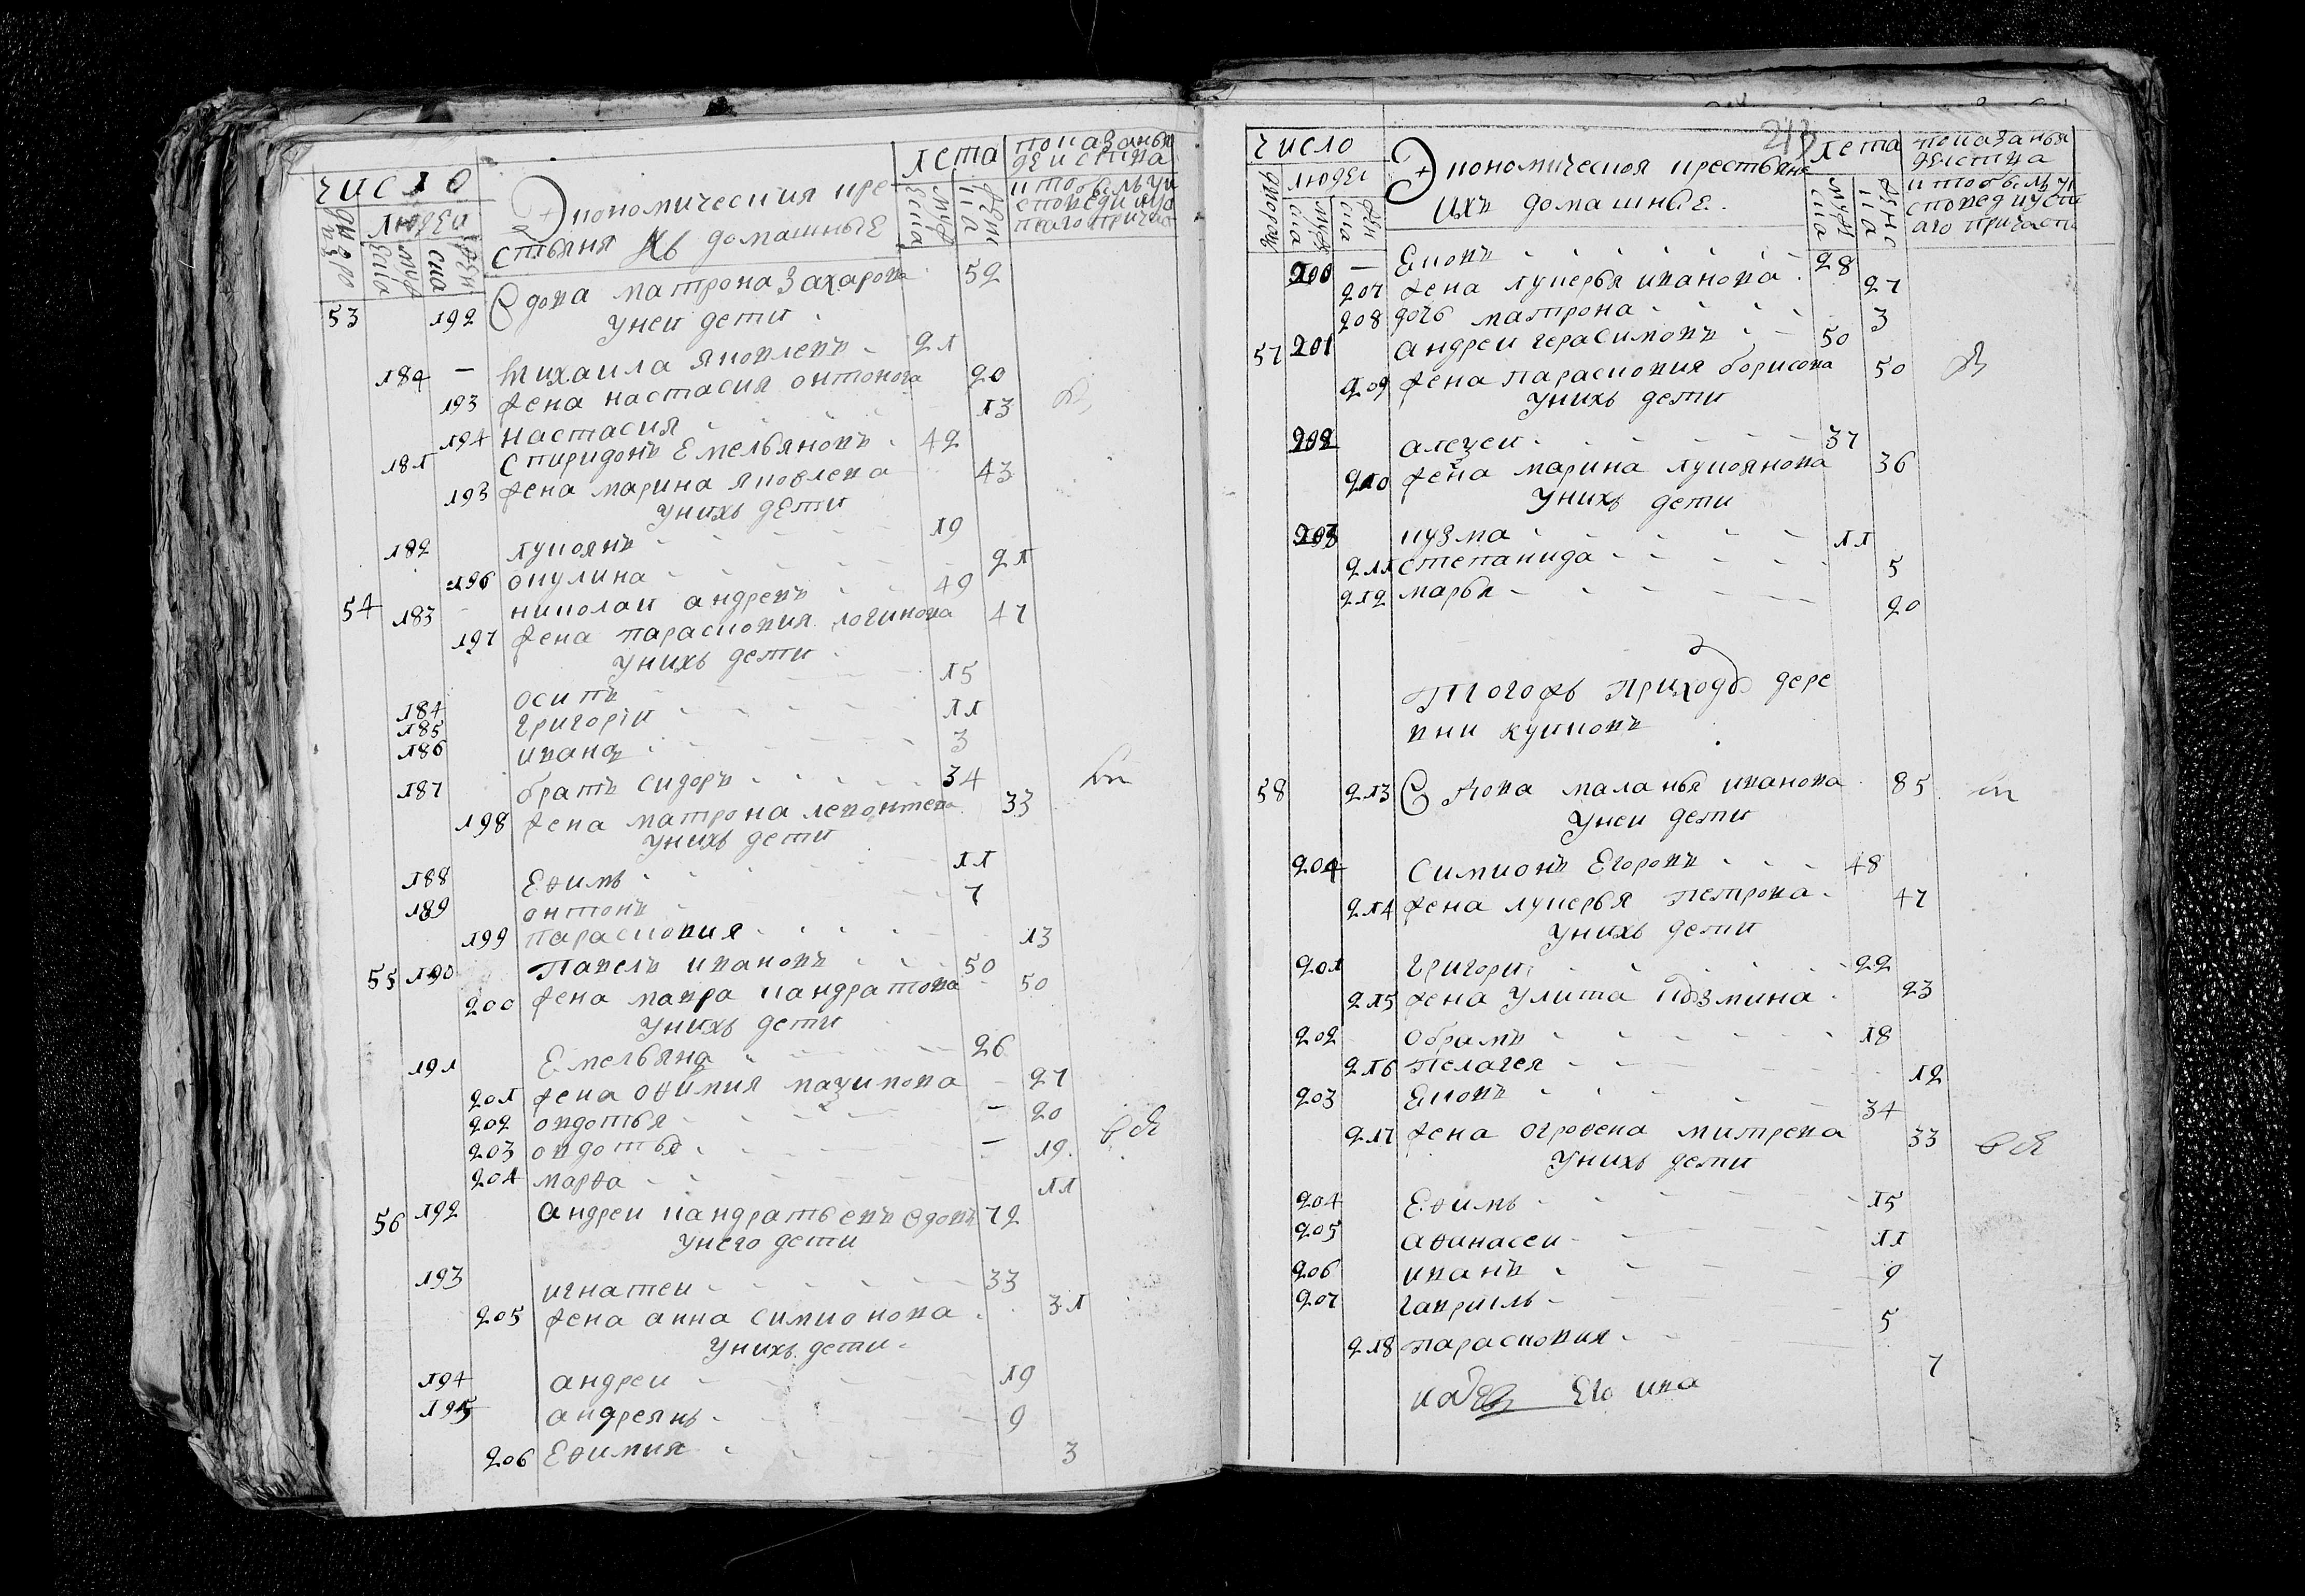 число
людеи
Экономическия кре
стьяня ихъ домашные
лета
показанья
действа
53 192 Вдова матрона захарова 52
унеи дети
180 — михаила яковлевъ 21
193 жена настасия онтонова 20
194 настасия 13
181 спиридонъ Емельяновъ 42
193 жена марина яковлева 43
унихъ дети
182 лукоянъ 19
196 окулина 21
54 183 николаи андревъ 49
197 жена парасковия логинова 47
унихъ дети
184 осипъ 15
185 григорiи 11
186 иванъ 3
187 братъ сидоръ 34
198 жена матрона левонтева 33
унихъ дети
188 Еѳимъ 11
189 онтонъ 7
199 парасковия 13
55 190 Павелъ ивановъ 50
200 жена мавра кандратова 50
унихъ дети
191 Емельянъ 26
201 жена оѳимия мазимова 27
202 овдотья 20
203 овдотья 19
204 марѳа 11
56 192 андреи кандратьевъ вдовъ 72
унего дети
193 игнатеи 33
205 жена анна симионова 31
унихъ дети
194 андреи 19
195 андреянъ 9
206 Еѳимия 3
число
людеи
243
Экономическия крестьяне
ихъ домашные
лета
показанья
действа
200 — Яковъ 28
207 жена лукерья иванова 27
208 дочь матрона 3
57 201 андреи герасимовъ 50
209 жена парасковия борисова 50
унихъ дети
202 алеѯеи 37
210 жена марина лукоянова 36
унихъ дети
203 кузма 11
211 степанида 5
212 марья 20
тогожъ приходу дере
вни
58 213 Вдова маланья иванова 85
унеи дети
204 Симионъ Егоровъ 48
214 жена лукерья петрова 47
унихъ дети
201 григори 22
215 жена улита кузмина 23
202 обрамъ 18
216 пелагея 12
203 Яковъ 34
217 жена огрофена митрева 33
унихъ дети
204 Еѳимъ 15
205 аѳинасеи 11
206 иванъ 9
207 гаврилъ 5
218 парасковия 7